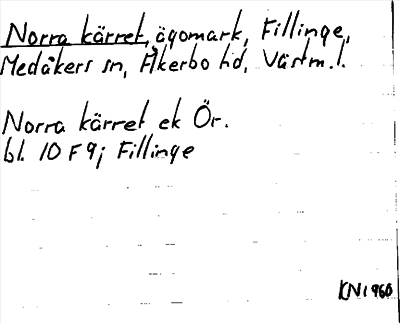 Norra kärret, ägomark, Fillinge,
Medåkers sn, Åkerbo hd, Västm.l.
Norra kärret ek Ör.
bl. 10 F 9j Fillinge
KN 1960